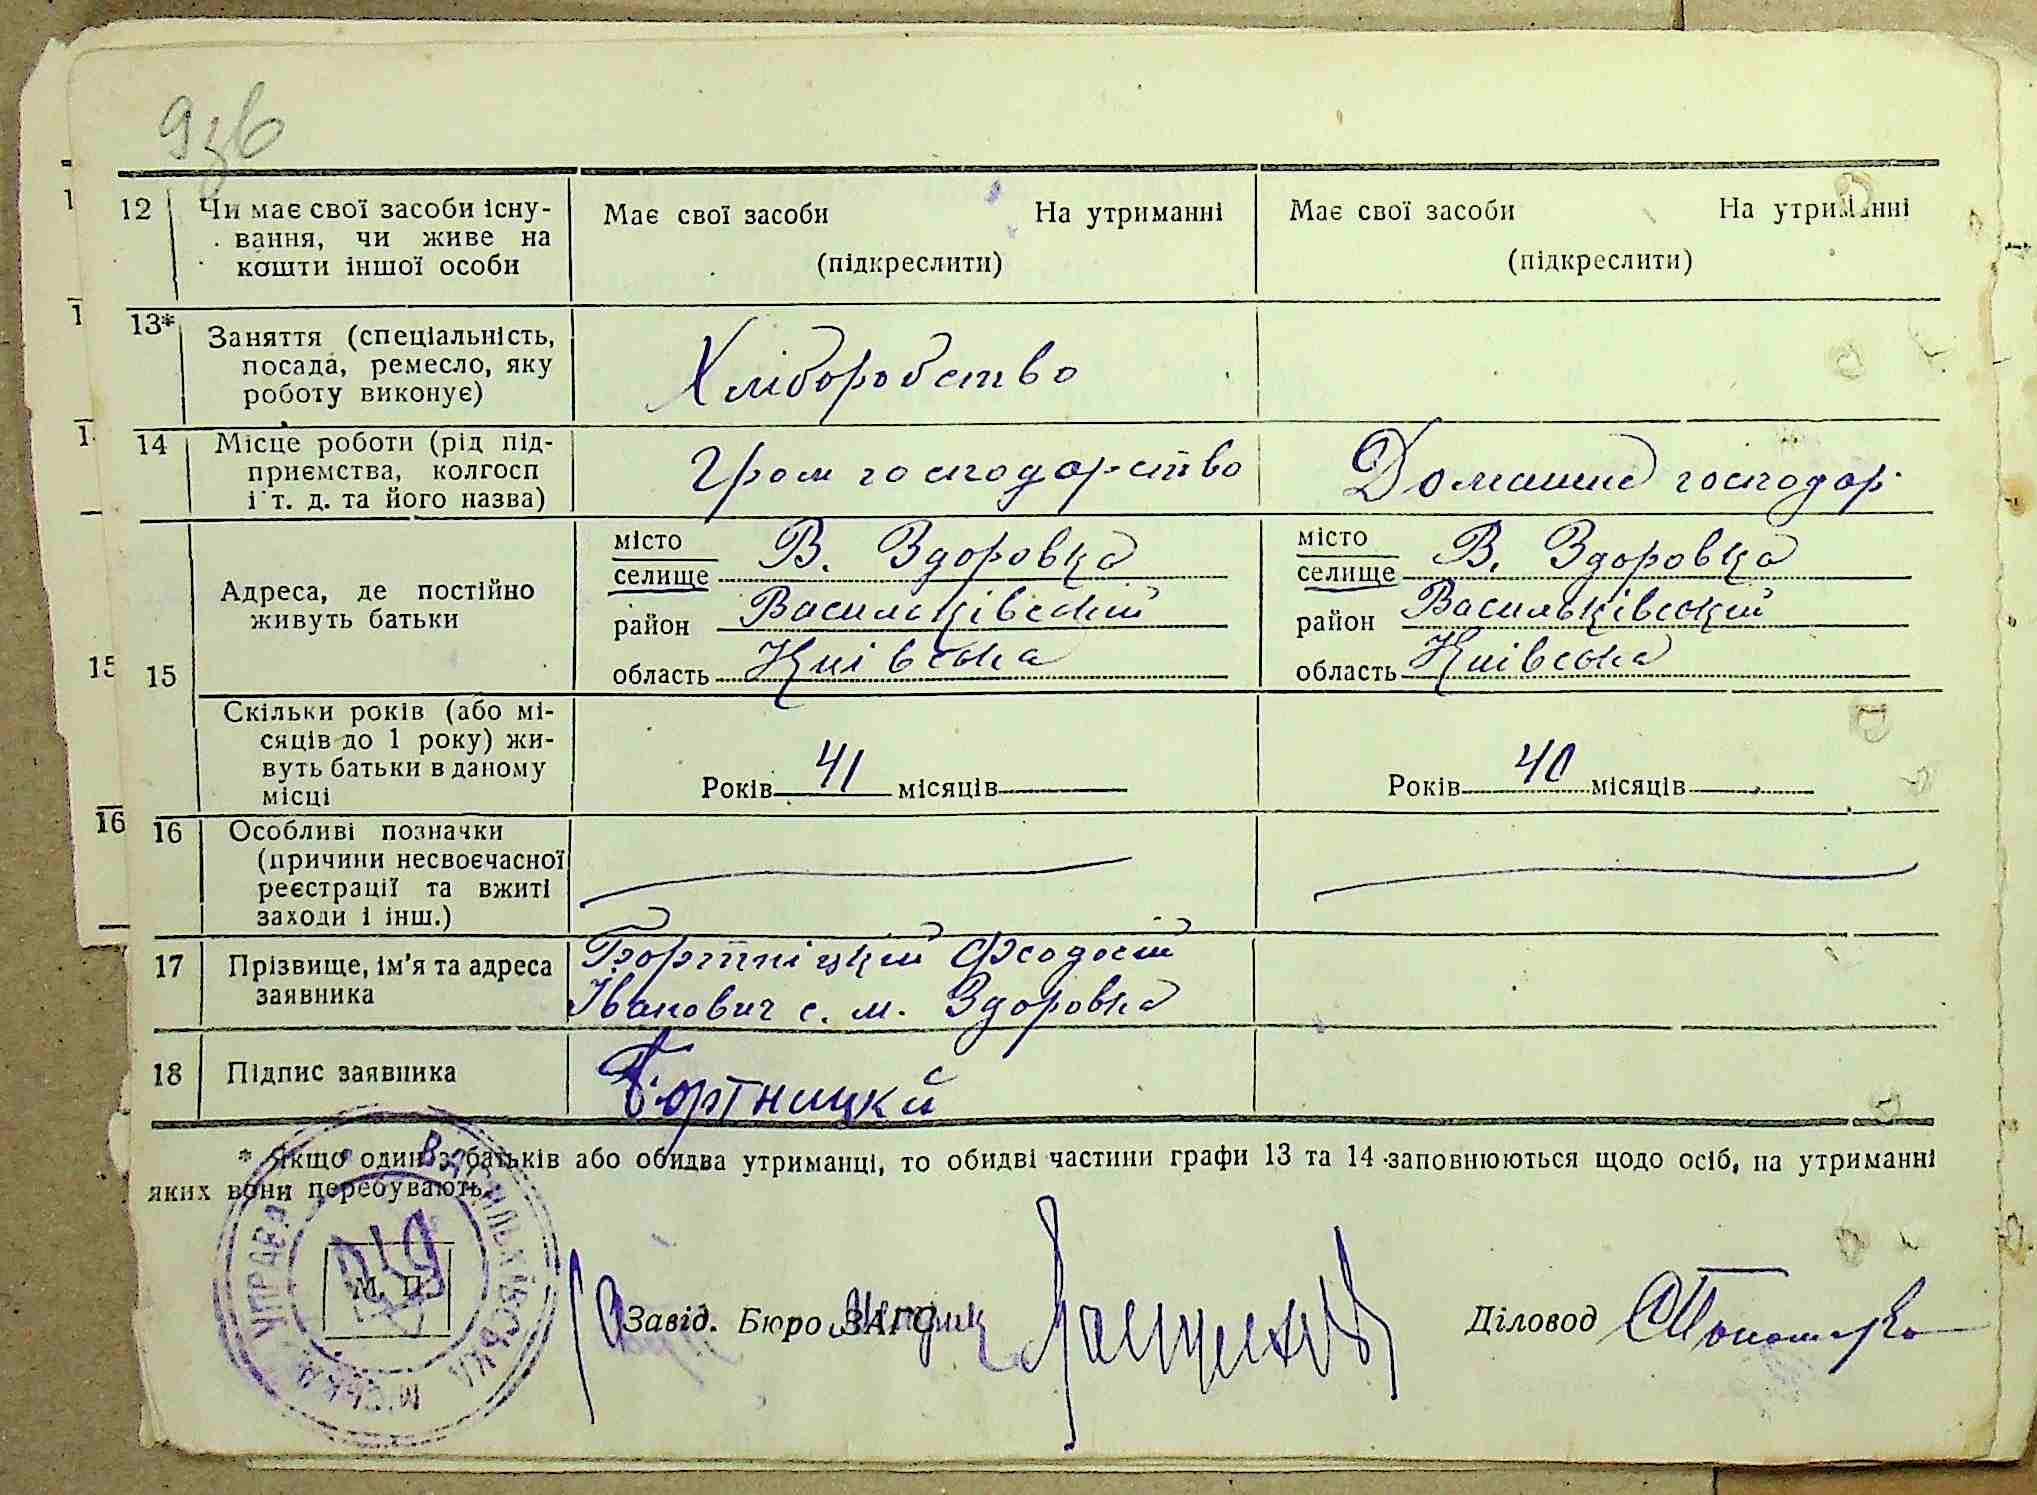 12 Чи має свої засоби існу-
вання, чи живе на
кошти іншої особи
Має свої засоби На утриманні
(підкреслити)
Має свої засоби На утриманні
(підкреслити)
13* Заняття (спеціальність,
посада, ремесло, яку
роботу виконує)
Хліборобство
14 Місце роботи (рід під-
приємства, колгосп
і т. д. та його назва)
Гром господарство
Домашнє господар.
15 Адреса, де постійно
живуть батьки
місто
селище В. Здоровка
район Васильківський
область Київська
місто
селище В. Здоровка
район Васильківський
область Київська
Скільки років (або мі-
сяців до 1 року) жи-
вуть батьки в даному
місці
Років 41 місяців
Років 40 місяців
16 Особливі позначки
(причини несвоєчасної
реєстрації та вжиті
заходи і інш.)
17 Прізвище, ім'я та адреса
заявника
Бортніцкий Феодосій
Іванович с. м. Здоровка
18 Підпис заявника
Бортницкй
* Якщо один з батьків або обидва утриманці, то обидві частини графи 13 та 14 заповнюються щодо осіб, на утриманні
яких вони перебувають.
ВАСИЛЬКІВСЬКА МІСЬКА УПРАВА
М. П.
Завід. Бюро ЗАГС
Діловод